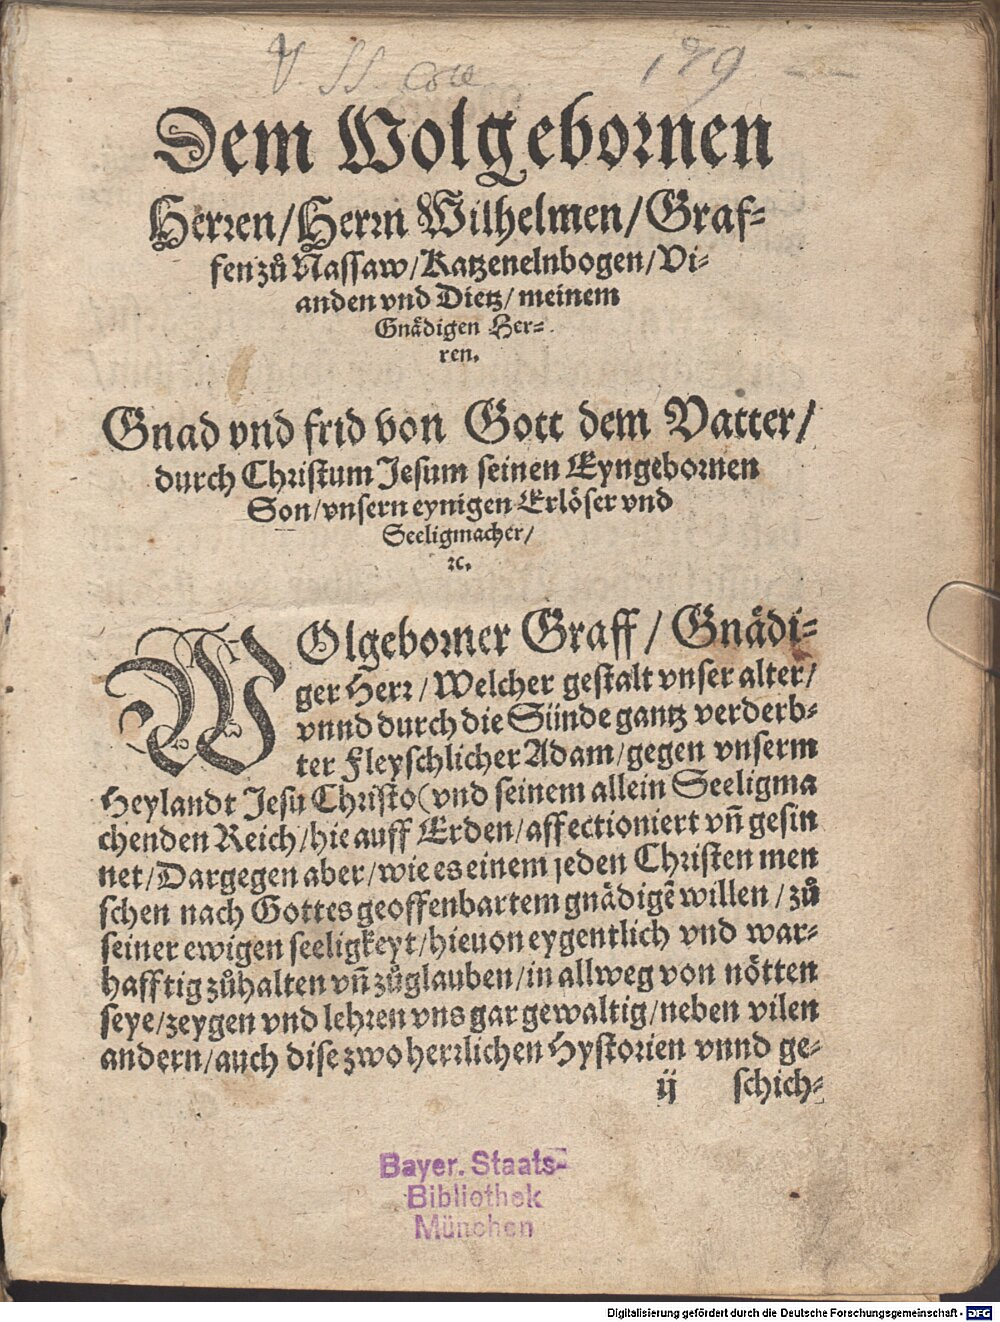 V. SS. 179
Dem Wolgebornen
Herren/Herrn Wilhelmen/Graf-
fen zů Nassaw/Katzenelnbogen/Vi-
anden vnd Dietz/meinem
Gnädigen Her-
ren.
Gnad vnd frid von Gott dem Vatter/
durch Christum Jesum seinen Eyngebornen
Son/vnsern eynigen Erlöser vnd
Seeligmacher/
ꝛc.
WOlgeborner Graff/Gnädi-
ger Herr/Welcher gestalt vnser alter/
vnnd durch die Sünde gantz verderb-
ter Fleyschlicher Adam/gegen vnserm
Heylandt Jesu Christo(vnd seinem allein Seeligma
chenden Reich/hie auff Erden/affectioniert vñ gesin
net/Dargegen aber/wie es einem jeden Christen men
schen nach Gottes geoffenbartem gnädigẽ willen/zů
seiner ewigen seeligkeyt/hieuon eygentlich vnd war-
hafftig zůhalten vñ zůglauben/in allweg von nötten
seye/zeygen vnd lehren vns gar gewaltig/neben vilen
andern/auch dise zwo herrlichen Hystorien vnnd ge-
ij schich-
Bayer. Staats-
Bibliothek
München
Digitalisierung gefördert durch die Deutsche Forschungsgemeinschaft - DFG